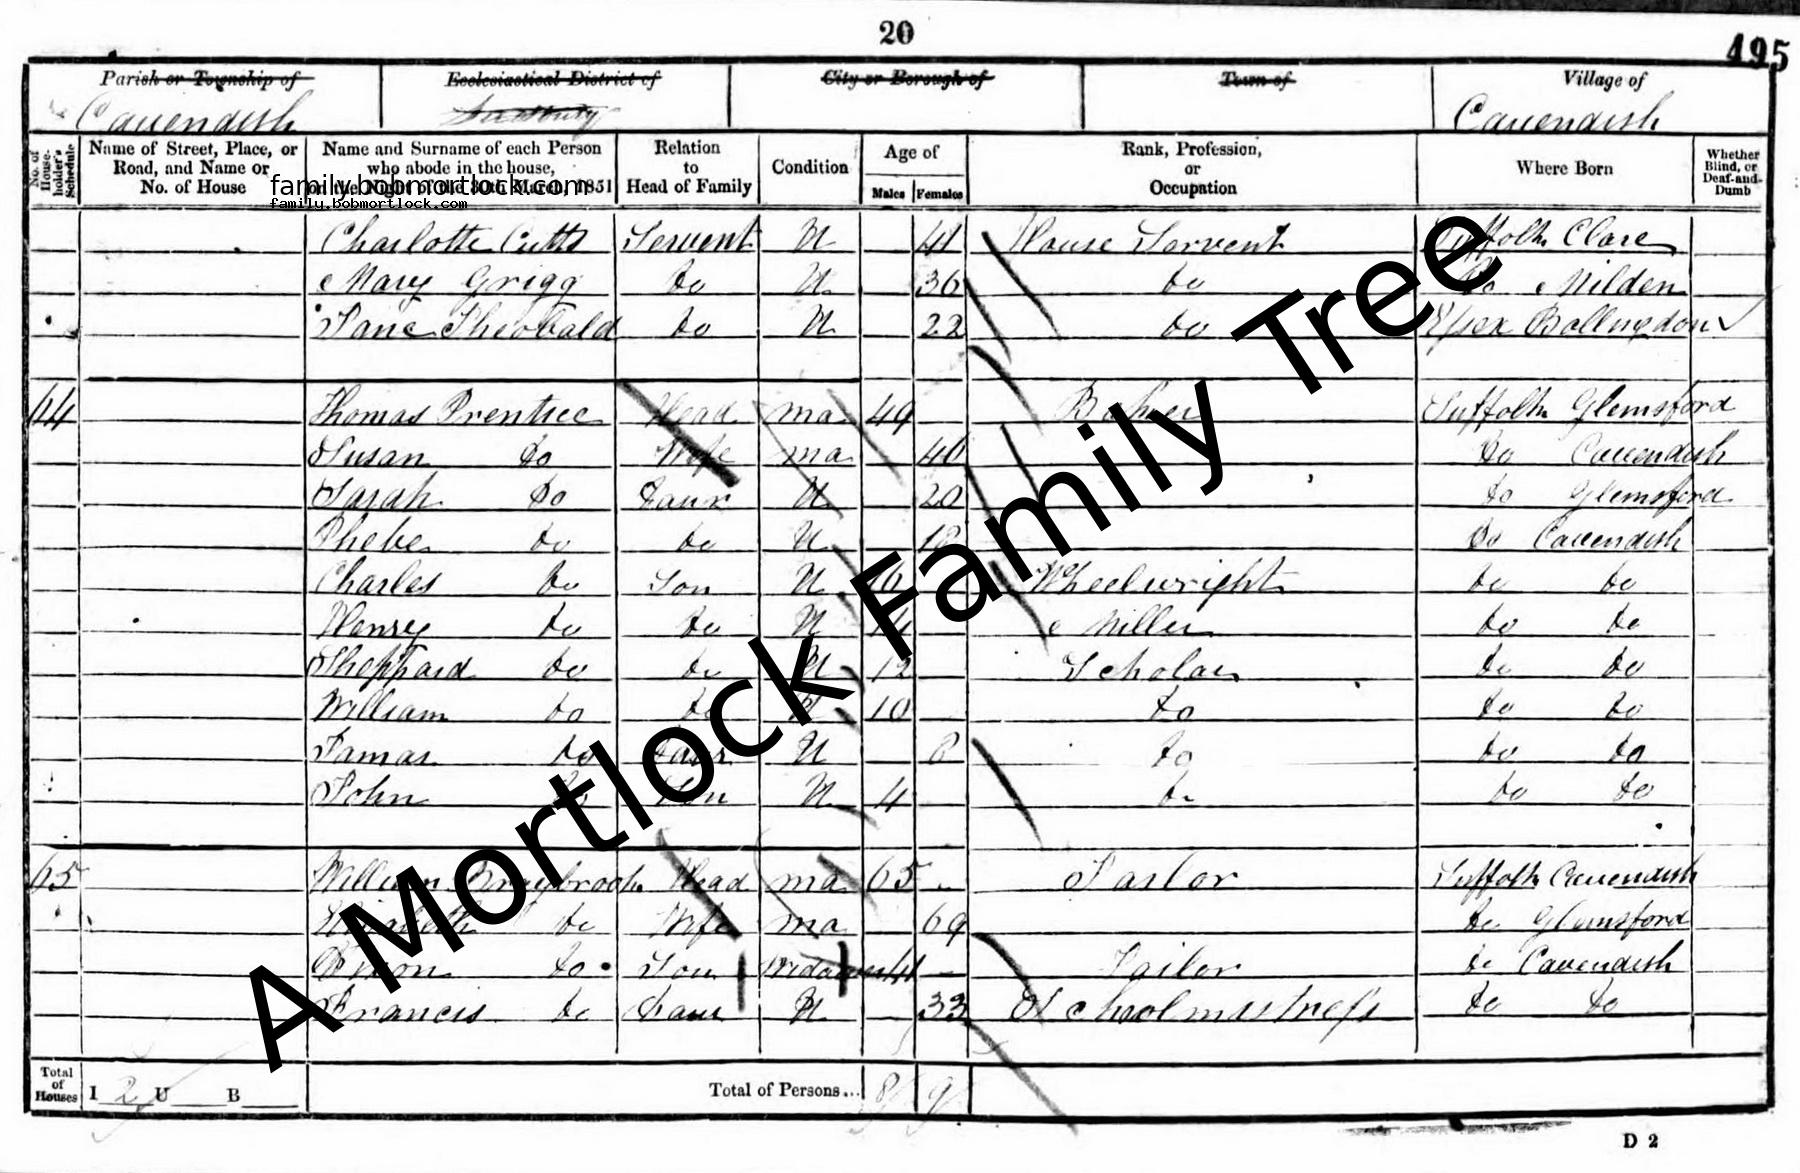 20
495
Parish or Township of Ecclesiastical District of City or Borough of Town of Village of
Cavendish Sudbury Cavendish
No. of House-holder's Schedule Name of Street, Place, or Road, and Name or No. of House Name and Surname of each Person who abode in the house, on the Night of the 30th March, 1851 Relation to Head of Family Condition Age of Males Females Rank, Profession, or Occupation Where Born Whether Blind, or Deaf-and-Dumb
family.bobmortlock.com
family.bobmortlock.com
Charlotte Cutts Servent U 41 House Servent Suffolk Clare
Mary Grigg do U 36 do do Milden
Jane Theobald do U 22 do Essex Ballingdon
64 Thomas Prentice Head ma 49 Baker Suffolk Glemsford
Susan do Wife ma 46 do Cavendish
Sarah do Daur U 20 do Glemsford
Phebe do do U 18 do Cavendish
Charles do Son U 16 Wheelwright do do
Henry do do U 14 Miller do do
Sheppard do do U 12 Scholar do do
William do do U 10 do do do
Tamar do daur U do do do
John do Son U 4 do do do
65 William Braybrook Head ma 65 Tailor Suffolk Cavendish
Elizabeth do Wife ma 69 do Glemsford
do Son Widower 41 Tailor do Cavendish
Francis do daur U 33 Schoolmistress do do
Total of Houses I 2 U B Total of Persons... 8 9
D 2
A Mortlock Family Tree